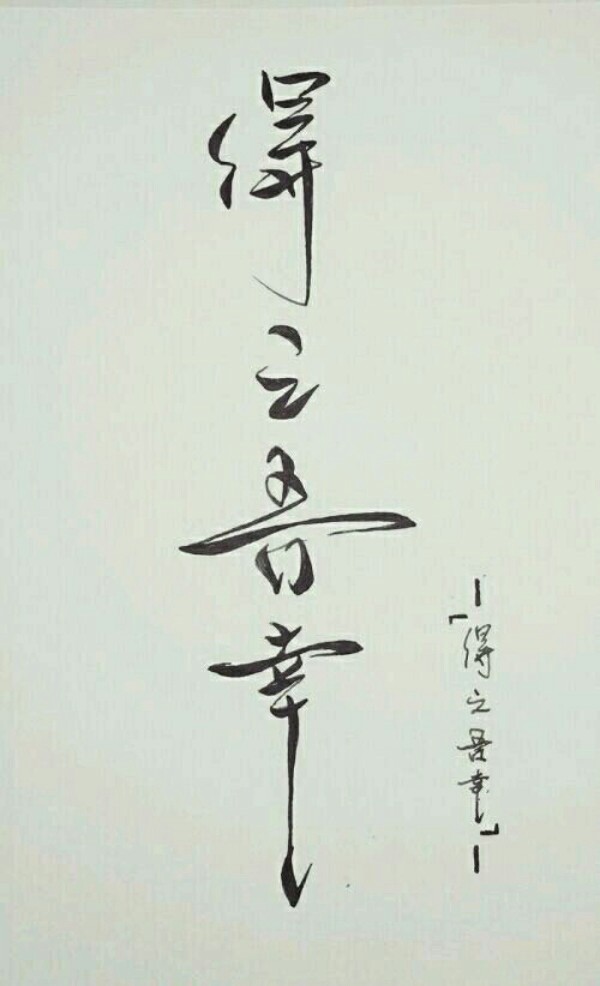 得之吾幸
「得之吾幸」